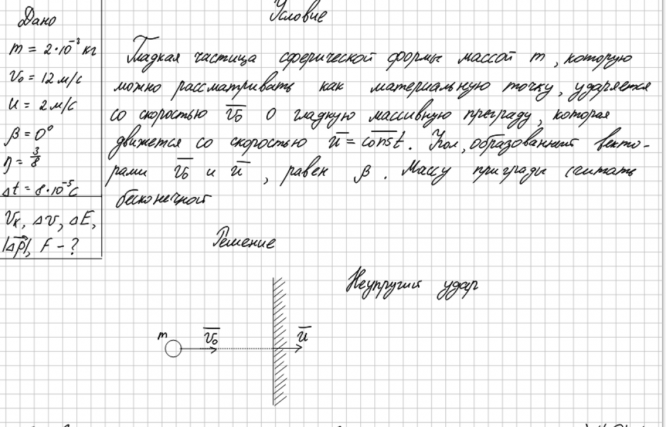 Дано
Условие
m = 2·10⁻³ кг
v₀ = 12 м/с
u = 2 м/с
β = 0°
η = 3/8
Δt = 8·10⁻⁵ с
Vк, Δv, ΔE,
|Δp|, F – ?
Гладкая частица сферической формы массой m, которую
можно рассматривать как материальную точку, ударяется
со скоростью v₀ о гладкую массивную преграду, которая
движется со скоростью u = const. Угол, образованный векто-
рами v₀ и u, равен β. Массу приграды считать
бесконечной
Решение
Неупругий удар
m
v₀
u